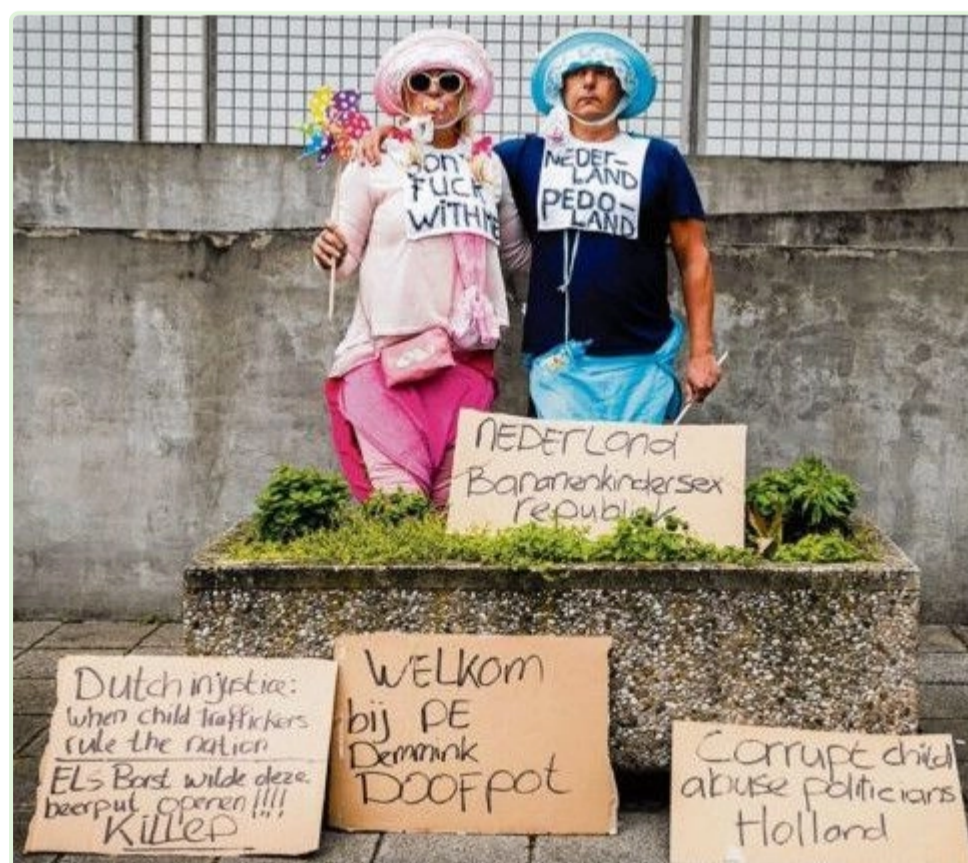 DON'T
FUCK
WITH ME
NEDER-
LAND
PEDO-
LAND
NEDERLAND
Bananenkindersex
republiek
Dutch injustice:
when child traffickers
rule the nation
ELS Borst wilde deze
beerput openen !!!!
KILLED
WELKOM
bij DE
Demmink
DOOFpot
Corrupt child
abuse politicians
Holland